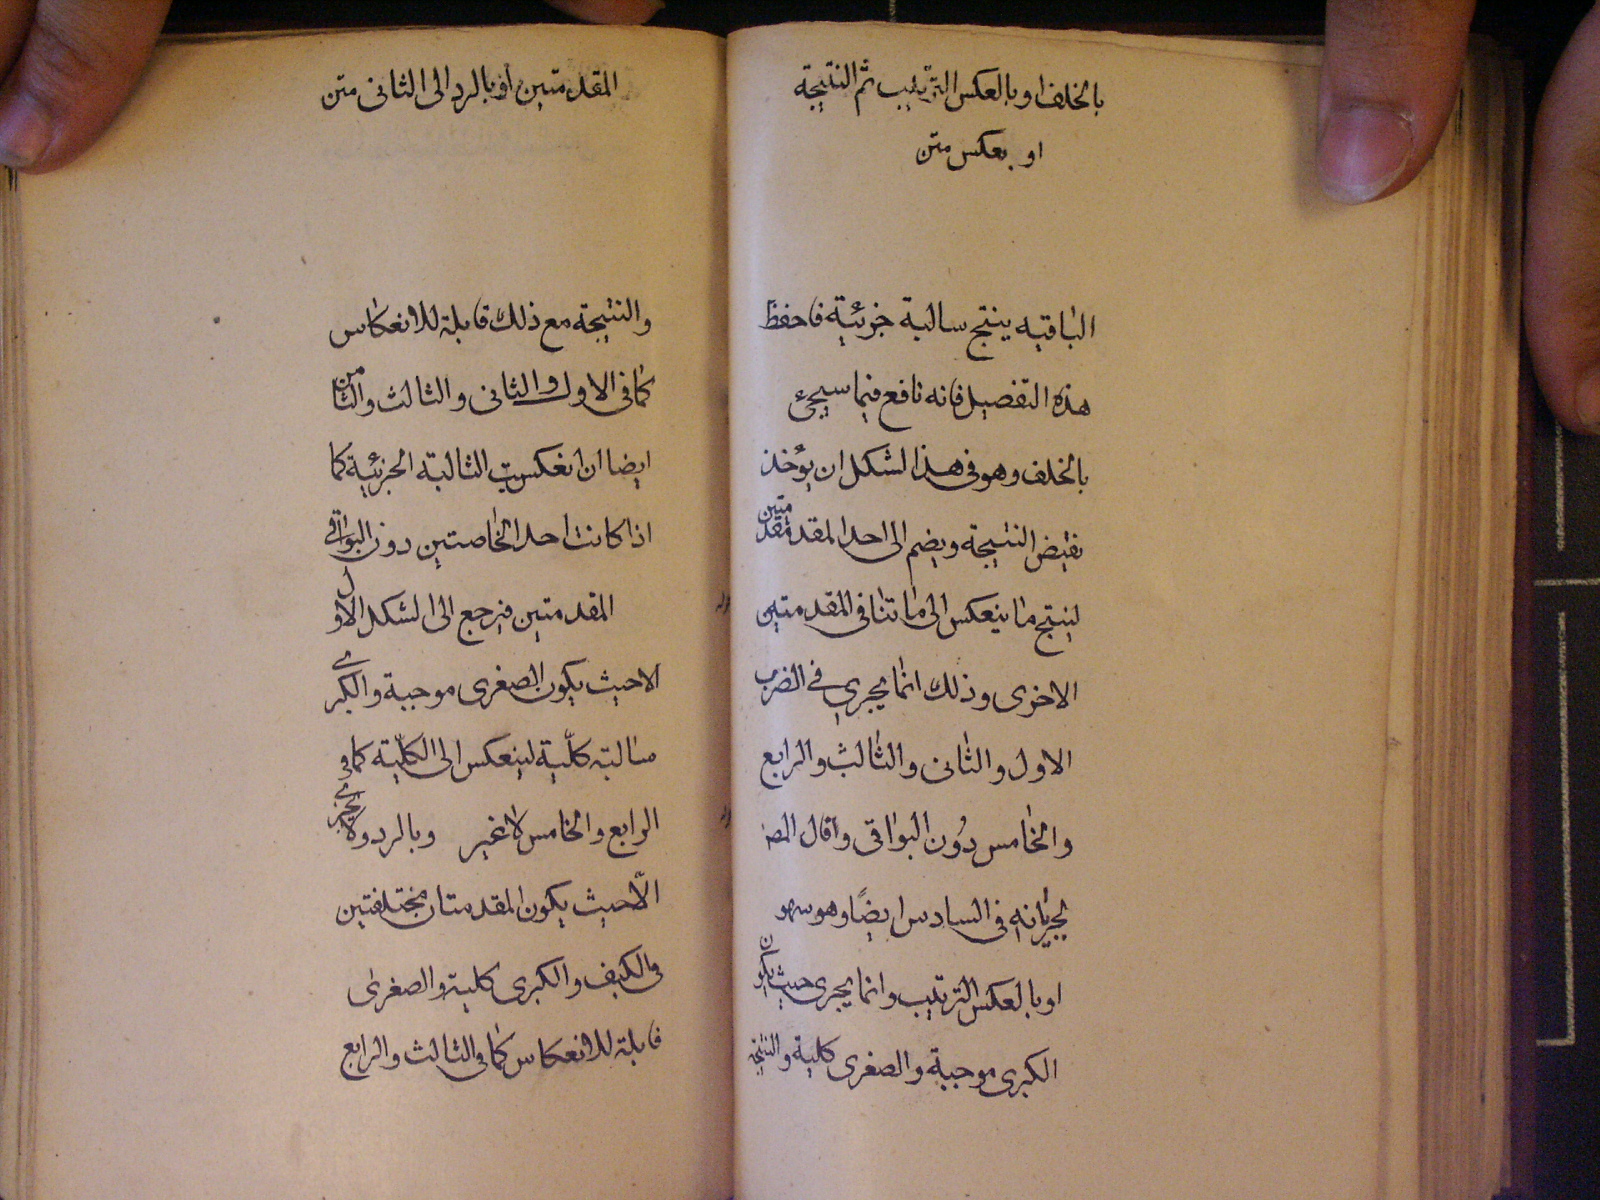 بالخلف او بالعكس الترتيب ثم النتيجة
او بعكس متن
الباقيه ينتج سالبة جزئية فاحفظ
هذه التفصيل فانه نافع فيما سيجئ
بالخلف وهو فى هذا لشكل ان يؤخذ
نقيض النتيجة ويضم الى احد المقدمتين
لينتج ما ينعكس الى ما تنافى المقدمتين
الاخرى وذلك انما يجرى في الضرب
الاول والثانى والثالث والرابع
والخامس دون البواقى وقال المص
بجريانه فى السادس ايضا وهو سهو
او بالعكس الترتيب وانما يجرى حيث يكون
الكبرى موجبة والصغرى كلية والنتيجة
المقدمتين أو بالرد الى الثانى متن
والنتيجة مع ذلك قابلة للانعكاس
كما فى الاول والثانى والثالث والثامن
ايضا ان انعكست السالبة الجزئية كما
اذا كانت احد الخاصتين دون البواقى
المقدمتين فيرجع الى الشكل الاول
الا حيث يكون الصغرى موجبة والكبرى
سالبة كلّية لينعكس الى الكلّية كما فى
الرابع والخامس لا غير وبالرد ولا يجرى
الّا حيث يكون المقدمتان مختلفتين
فى الكيف والكبرى كلية والصغرى
قابلة للانعكاس كما فى الثالث والرابع